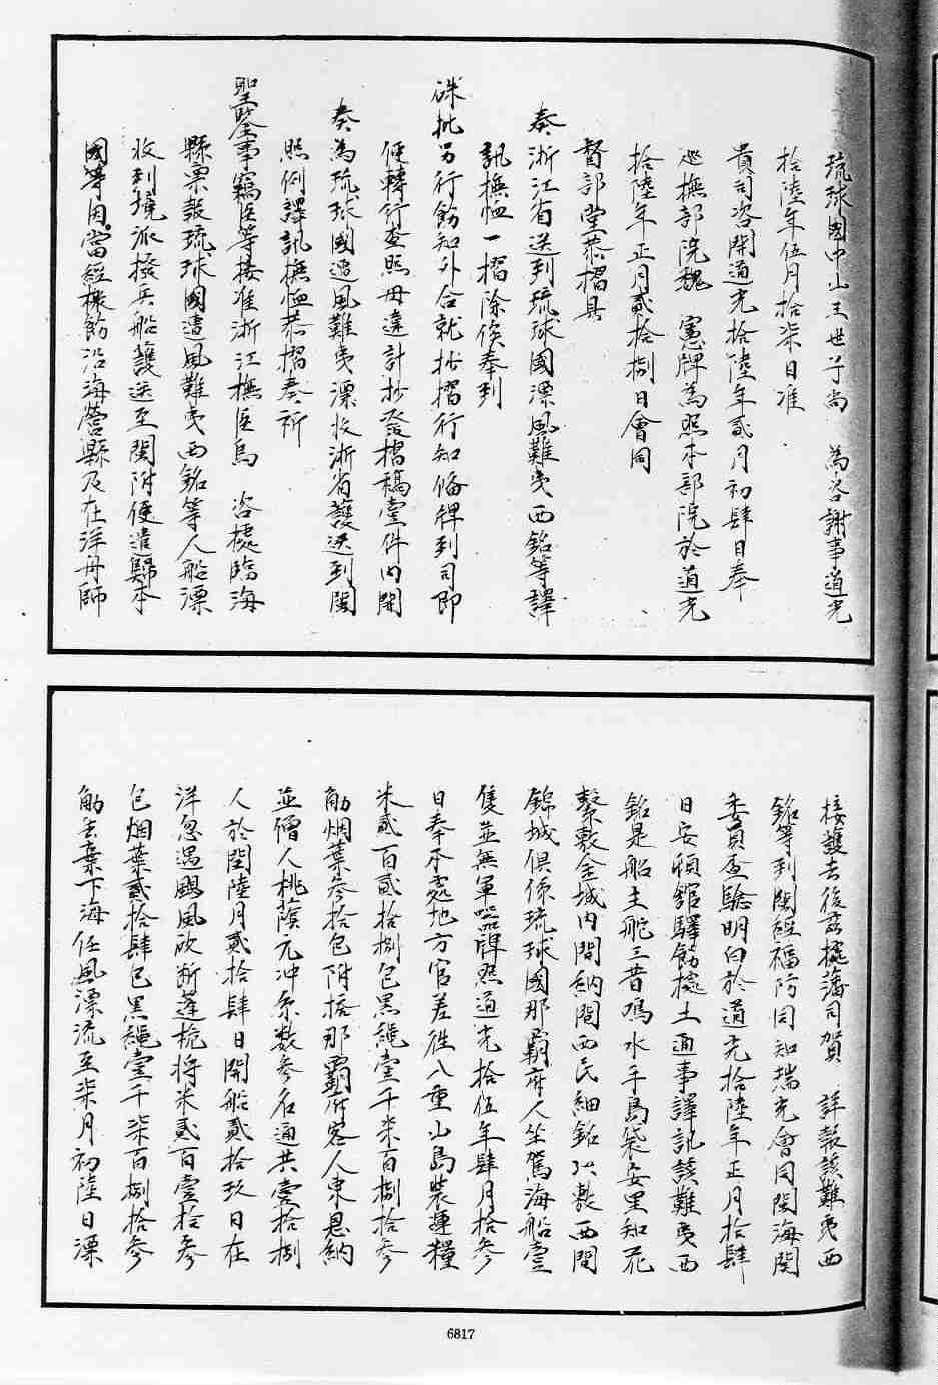 琉球國中山王世子尚　為咨謝事道光
拾陸年伍月拾柒日准
貴司咨開道光拾陸年貳月初肆日奉
巡撫部院魏　憲牌為照本部院於道光
拾陸年正月貳拾捌日會同
督部堂恭摺具
奏浙江省送到琉球國漂風難夷西銘等譯
訊撫恤一摺除俟奉到
硃批另行飭知外合就抄摺行知俻牌到司即
便轉行查照毋違計抄發摺稿壹件內開
奏為琉球國遭風難夷漂收浙省護送到閩
照例譯訊撫恤恭摺奏祈
聖鑒事竊臣等接准浙江撫臣烏　咨據臨海
縣稟報琉球國遭風難夷西銘等人船漂
收到境派撥兵船護送至閩附便遣歸本
國等因當經檄飭沿海營縣及在洋舟師
接護去後茲據藩司賀　詳報該難夷西
銘等到閩經福防同知瑞光會同閩海関
委員查驗明白於道光拾陸年正月拾肆
日安頓館驛飭據土通事譯訊該難夷西
銘是船主舵三昔鳴水手島袋安里知花
繫數金城內間納間西民細銘比數西間
錦城俱係琉球國那霸府人坐駕海船壹
隻並無軍器牌照道光拾伍年肆月拾參
日奉本處地方官差徃八重山島裝運糧
米貳百貳拾捌包黑繩壹千柒百捌拾參
觔烟葉參拾包附搭那霸府客人東恩納
並僧人桃蔭元冲系数參名通共壹拾捌
人於閏陸月貳拾肆日開船貳拾玖日在
洋忽遇颶風砍斷蓬桅將米貳百壹拾參
包烟葉貳拾肆包黑繩壹千柒百捌拾參
觔丟棄下海任風漂流至柒月初陸日漂
6817